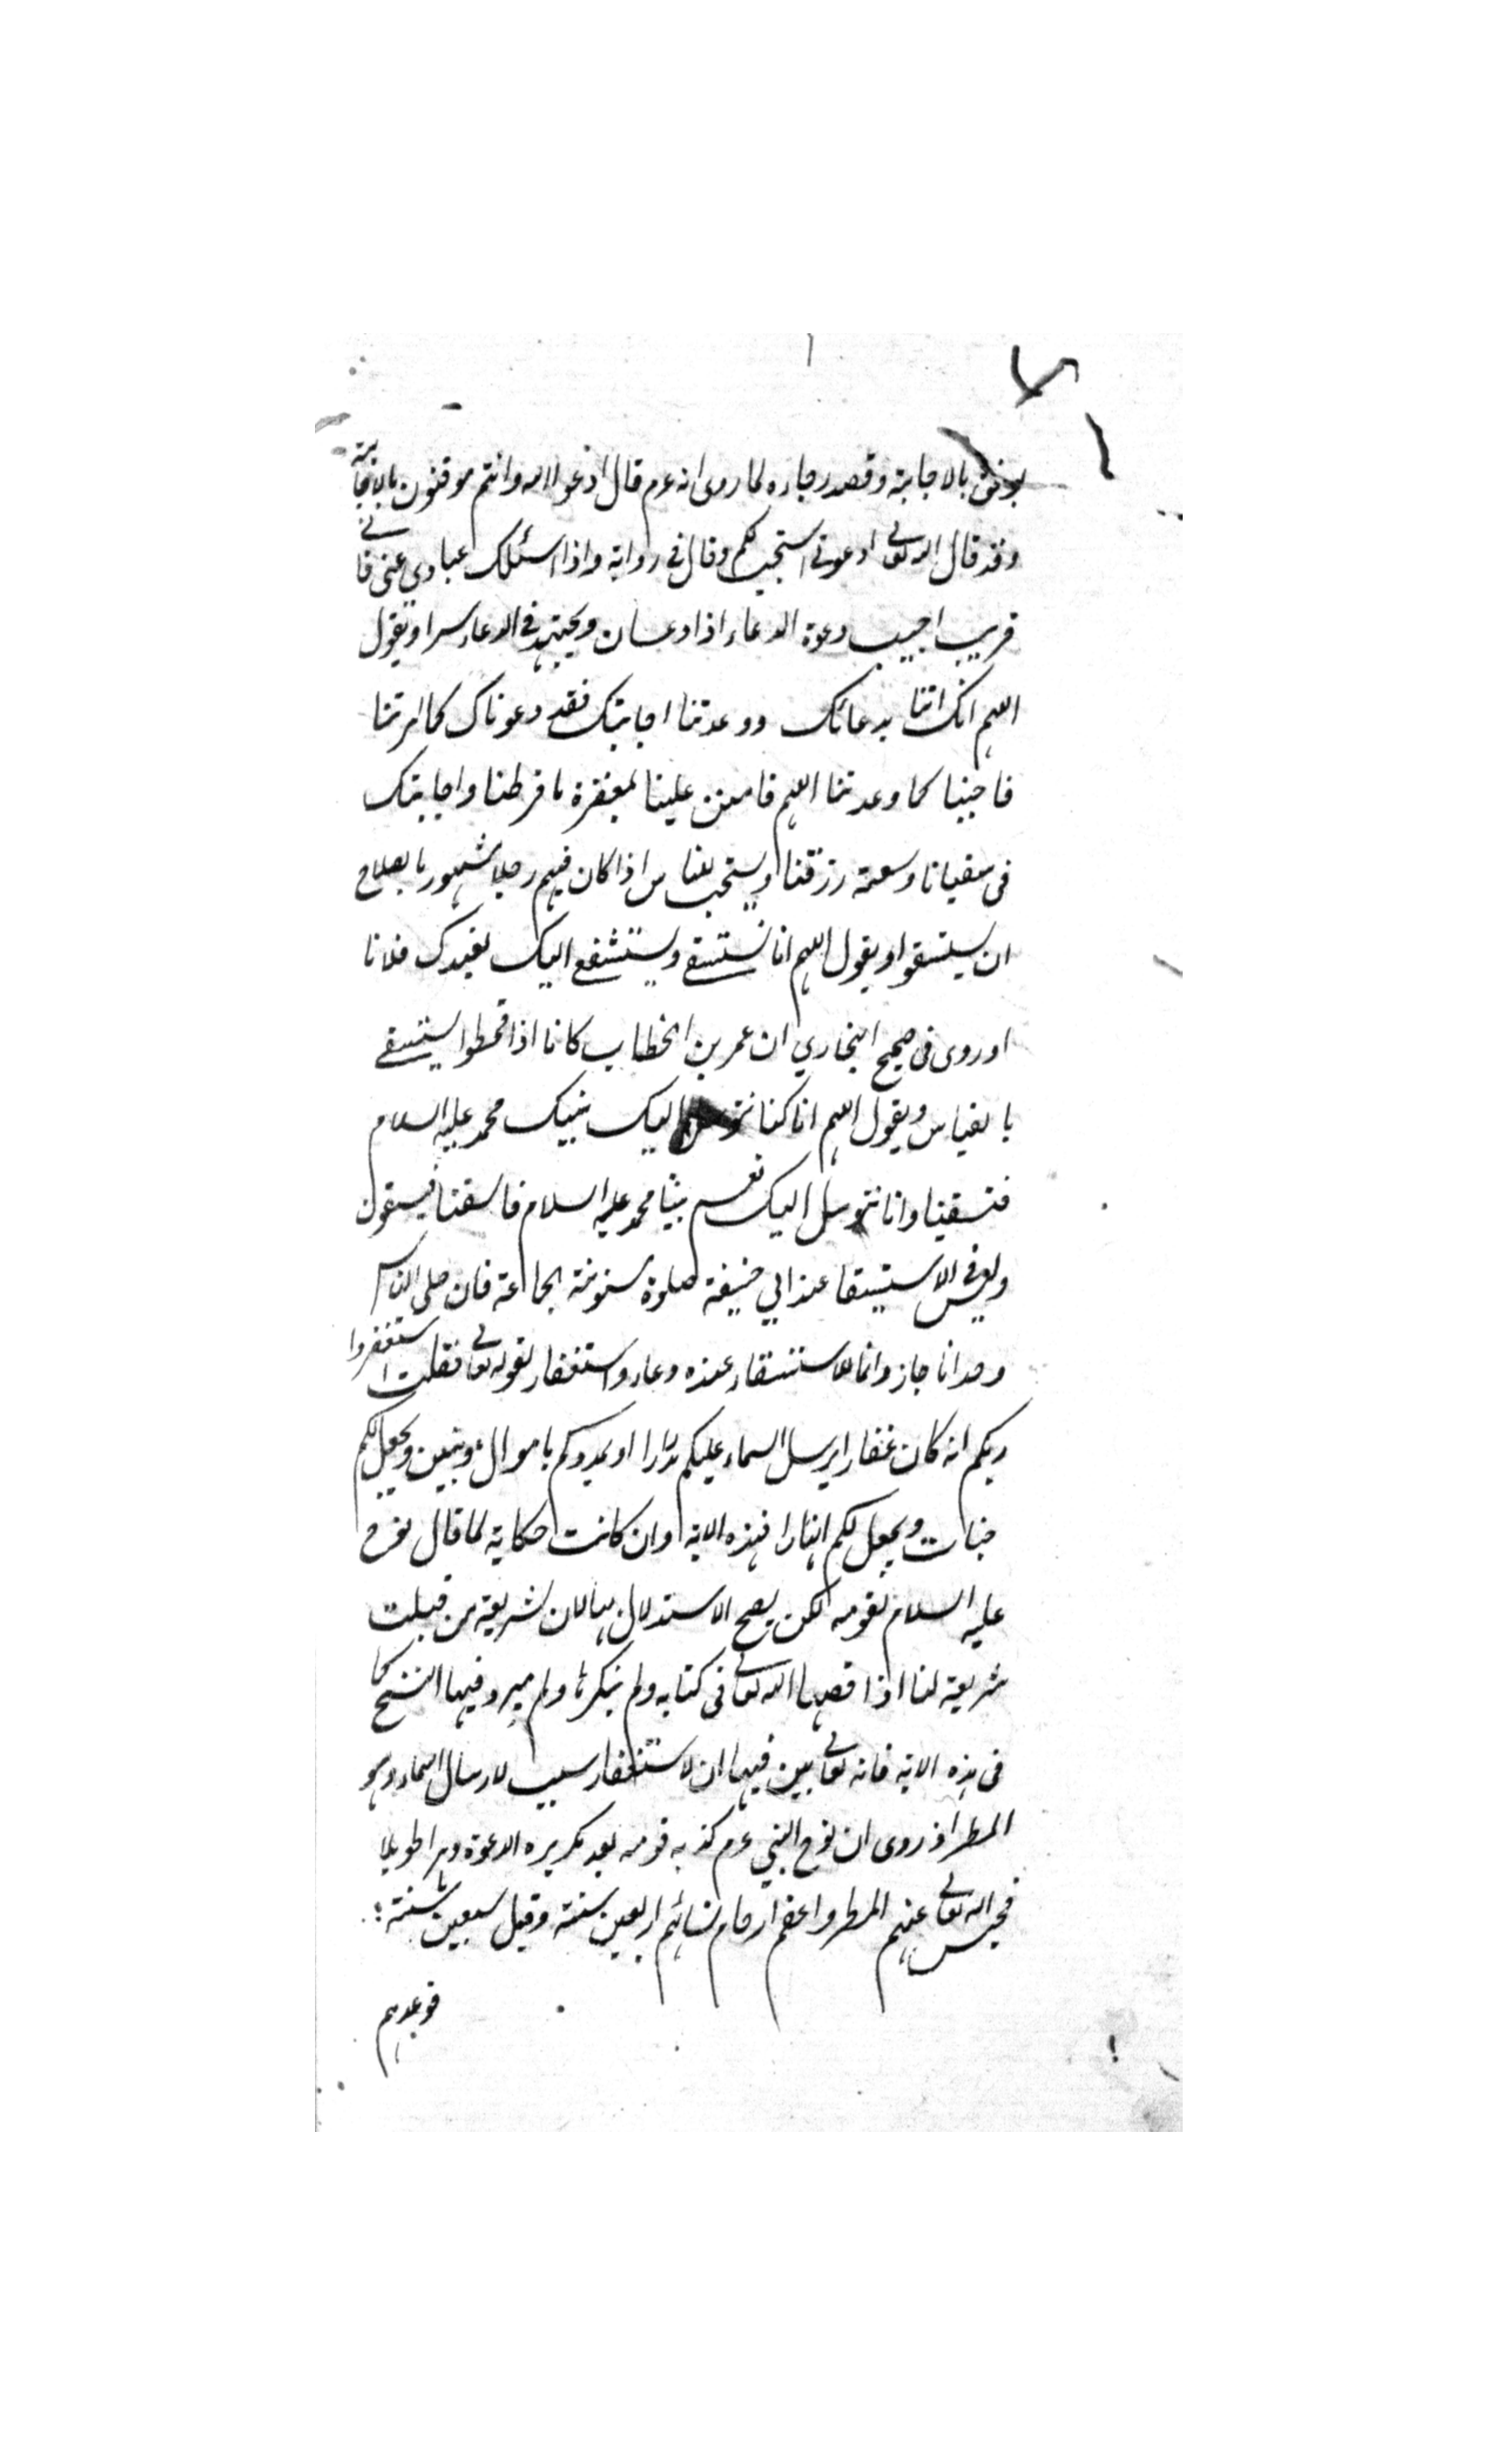 يوقن بالاجابة وقصد رجاره لما روى انه عرم قال ادعوا الله وانتم موقنون بالاجابة
وقد قال الله تعالى ادعونى استجب لكم وقال فى رواية واذا سئلك عبادي عنى فانى
قريب اجيب دعوة الدعاء اذا دعان ويجتهد فى الدعاء سرا ويقول
اللهم انك امرتنا بدعائك ووعدتنا اجابتك فقد دعوناك كما امرتنا
فاجبنا كما وعدتنا اللهم فامنن علينا لمغفرة ما فرطنا واجابتك
فى سقيانا وسعة رزقنا ويستحب للناس اذا كان فيهم رجلا مشهورا بصلاح
ان يستسقوا ويقول اللهم انا نستسقى ونستشفع اليك بعبدك فلانا
اوروى فى صحيح البخاري ان عمر بن الخطاب كانا اذا قحطوا يستسقى
بالعباس ويقول اللهم انا كنا نتوسل اليك بنبيك محمد عليه السلام
فتسقينا وانا نتوسل اليك بعم نبينا محمد عليه السلام فاسقنا فيسقون
وليس فى الاستسقا عند ابي حنيفة صلوة مسنونة بجماعة فان صلى الناس
وحدانا جاز وانما الاستسقاء عنده دعاء واستغفار لقوله تعالى فقلت استغفروا
ربكم انه كان غفارا يرسل السماء عليكم مدرارا او يمددكم باموال وبنين ويجعل لكم
جنات ويجعل لكم انهارا فهذه الاية وان كانت حكاية لما قال نوح
عليه السلام لقومه لكن يصح الاستدلال بها لان شريعة من قبلت
شريعة لنا اذا قصها الله تعالى فى كتابه ولم ينكرها ولم يرد فيها النسخ كما
فى هذه الاية فانه تعالى بين فيها ان لاستغفار سبب لارسال السماء وهو
المطر اذ روى ان نوح النبي عرم كذبه قومه بعد تكريره الدعوة دهرا طويلا
فحبس الله تعالى عنهم المطر واعقم ارحام نسائهم اربعين سنة وقيل سبعين سنة
فوعدهم